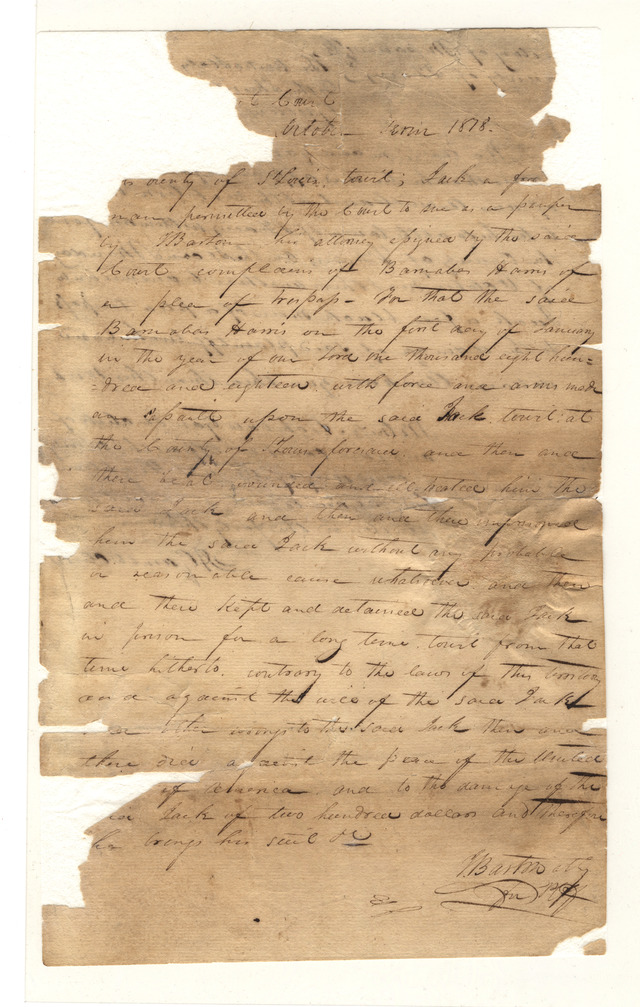 Court
Octob Term 1818.
ounty of St Louis towit; Jack a free
man permitted by the Court to sue as a pauper
by J Barton his attorney assigned by the said
Court complains of Barnabas Harris of
a plea of trespass - For that the said
Barnabas Harris on the first day of January
in the year of our Lord one thousand eight hun=
=dred and eighteen with force and arms made
an assault upon the said Jack towit at
the County of St Louis aforesaid and then and
there beat wounded and ill treated him the
said Jack and then and there imprisoned
him the said Jack without any probable
or reasonable cause whatsoever and then
and there kept and detained the said Jack
in prison for a long time towit from that
time hitherto contrary to the laws of this Territory
and against the will of the said Jack
other wrongs to the said Jack then and
there did against the peace of the United
of America and to the damage of the
Jack of two hundred dollars and therefore
he brings his suit &c
J. Barton atty
for Plff